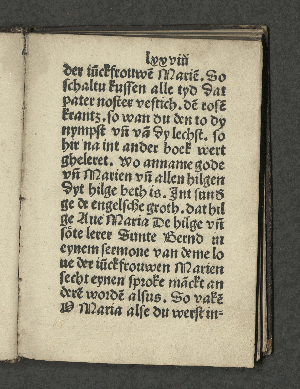 lxxviii
der iūckfrouwē Mariē. So
schaltu kussen alle tyd dat
pater noster vestich. dē rosē
krantz. so wan du den to dy
nympst vñ vā dy lechst. so
hir na int ander boek wert
gheleret. Wo anname gode
vñ Marien vñ allen hilgen
dyt hilge beth is. Int sund
ge de engelsche groth. dat hil
ge Aue Maria De hilge vñ
sōte lerer Sunte Bernd in
eynem sermone van deme lo
ue der iūckfrouwen Marien
secht eynen sproke mäckt an
derē wordē alsus. So vakē
O Maria alse du werst in⸗